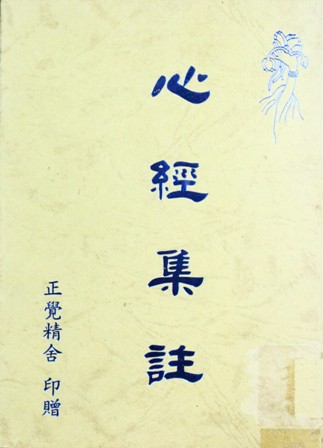 心經集註
正覺精舍 印贈